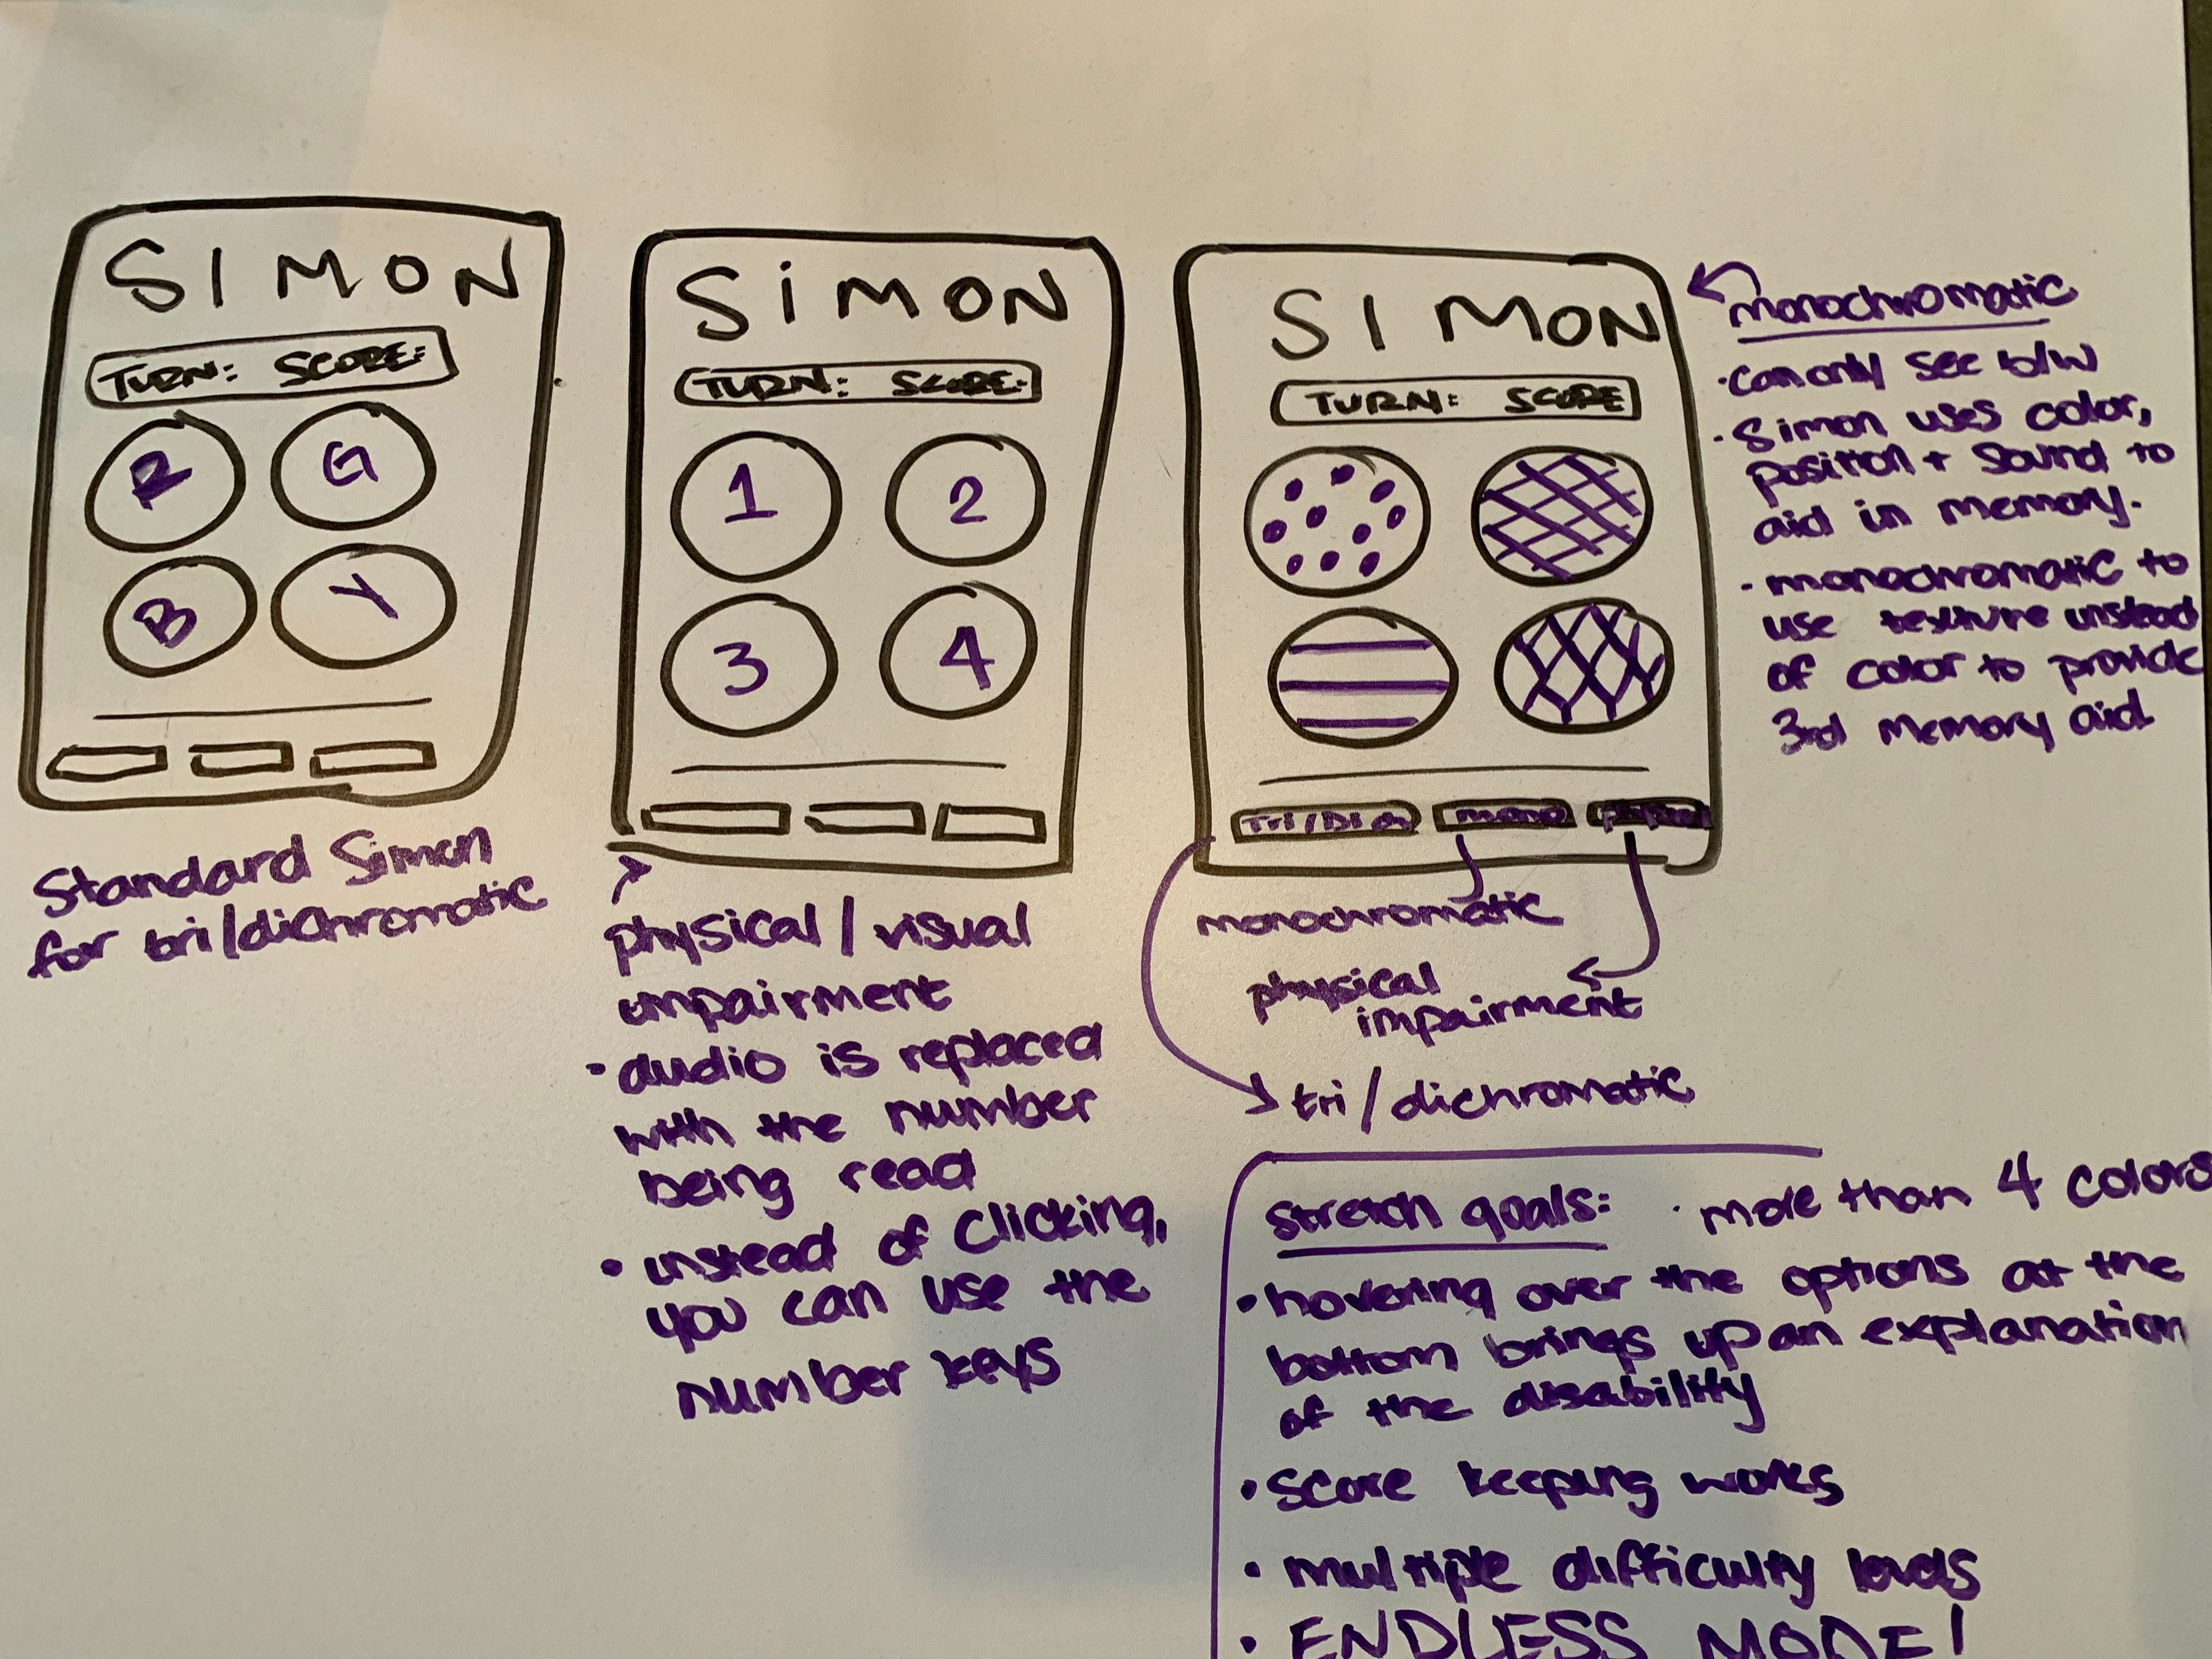 SIMON
TURN: SCORE:
R G
B Y
Standard Simon
for tri/dichromatic
SiMON
TURN: SCORE:
1 2
3 4
physical/visual
impairment
• audio is replaced
with the number
being read
• instead of clicking,
you can use the
number keys
SIMON
TURN: SCORE
mono
monochromatic
physical
impairment
tri/dichromatic
monochromatic
• can only see b/w
• Simon uses color,
position + sound to
aid in memory.
• monochromatic to
use texture instead
of color to provide
3rd memory aid
stretch goals: • more than 4 colors
• hovering over the options at the
bottom brings up an explanation
of the disability
• score keeping works
• multiple difficulty levels
• ENDLESS MODE!